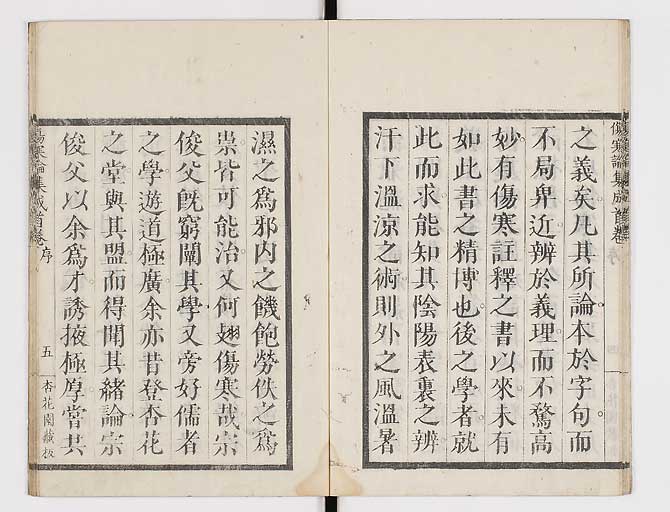 傷寒論集成首卷
之義矣凡其所論本於字句而
不局卑近辨於義理而不騖高
妙有傷寒註釋之書以來未有
如此書之精博也後之學者就
此而求能知其陰陽表裏之辨
汗下溫涼之術則外之風溫暑
濕之爲邪內之饑飽勞佚之爲
祟皆可能治又何翅傷寒哉宗
俊父既窮闡其學又旁好儒者
之學遊道極廣余亦昔登杏花
之堂與其盟而得聞其緒論宗
俊父以余爲才誘掖極厚嘗其
傷寒論集成首卷 序
五
杏花園藏板